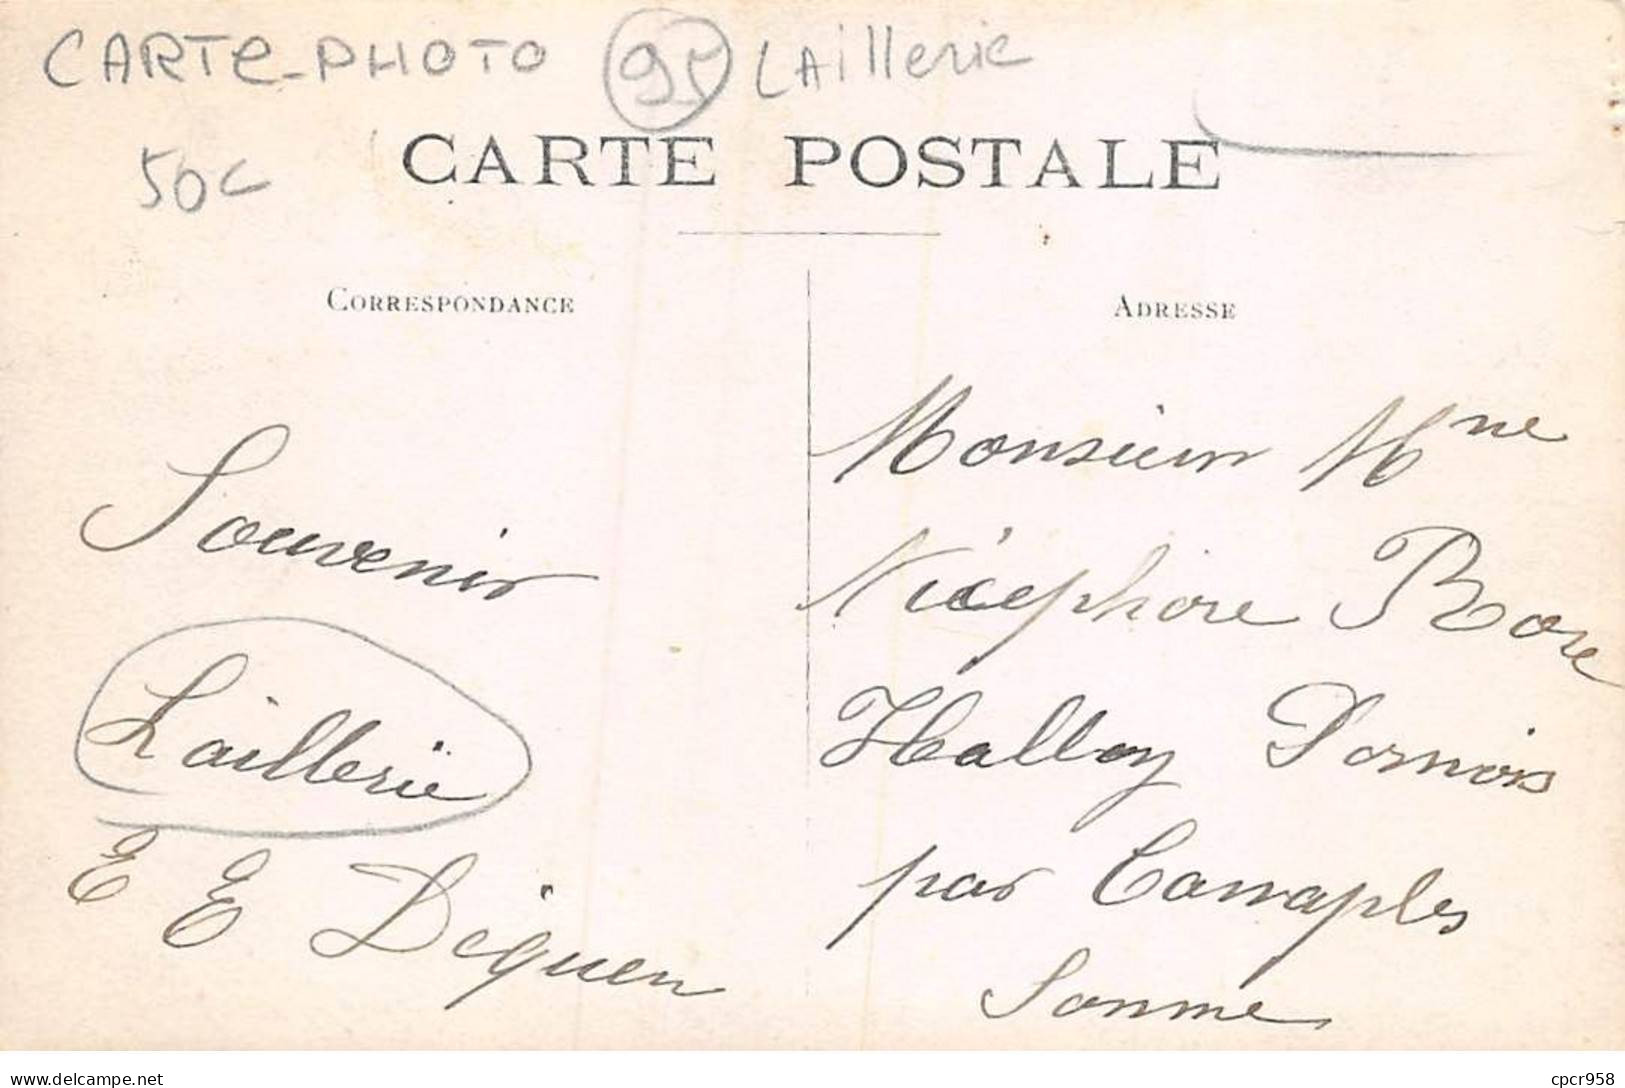 CARTE-PHOTO 95 LAillerie
50c
CARTE POSTALE
CORRESPONDANCE
ADRESSE
Souvenir
Laillerie
E E Déguen
Monsieur Mme
Nicéphore Bore
Halloy Pernois
par Canaples
Somme
delcampe.net
cpcr958